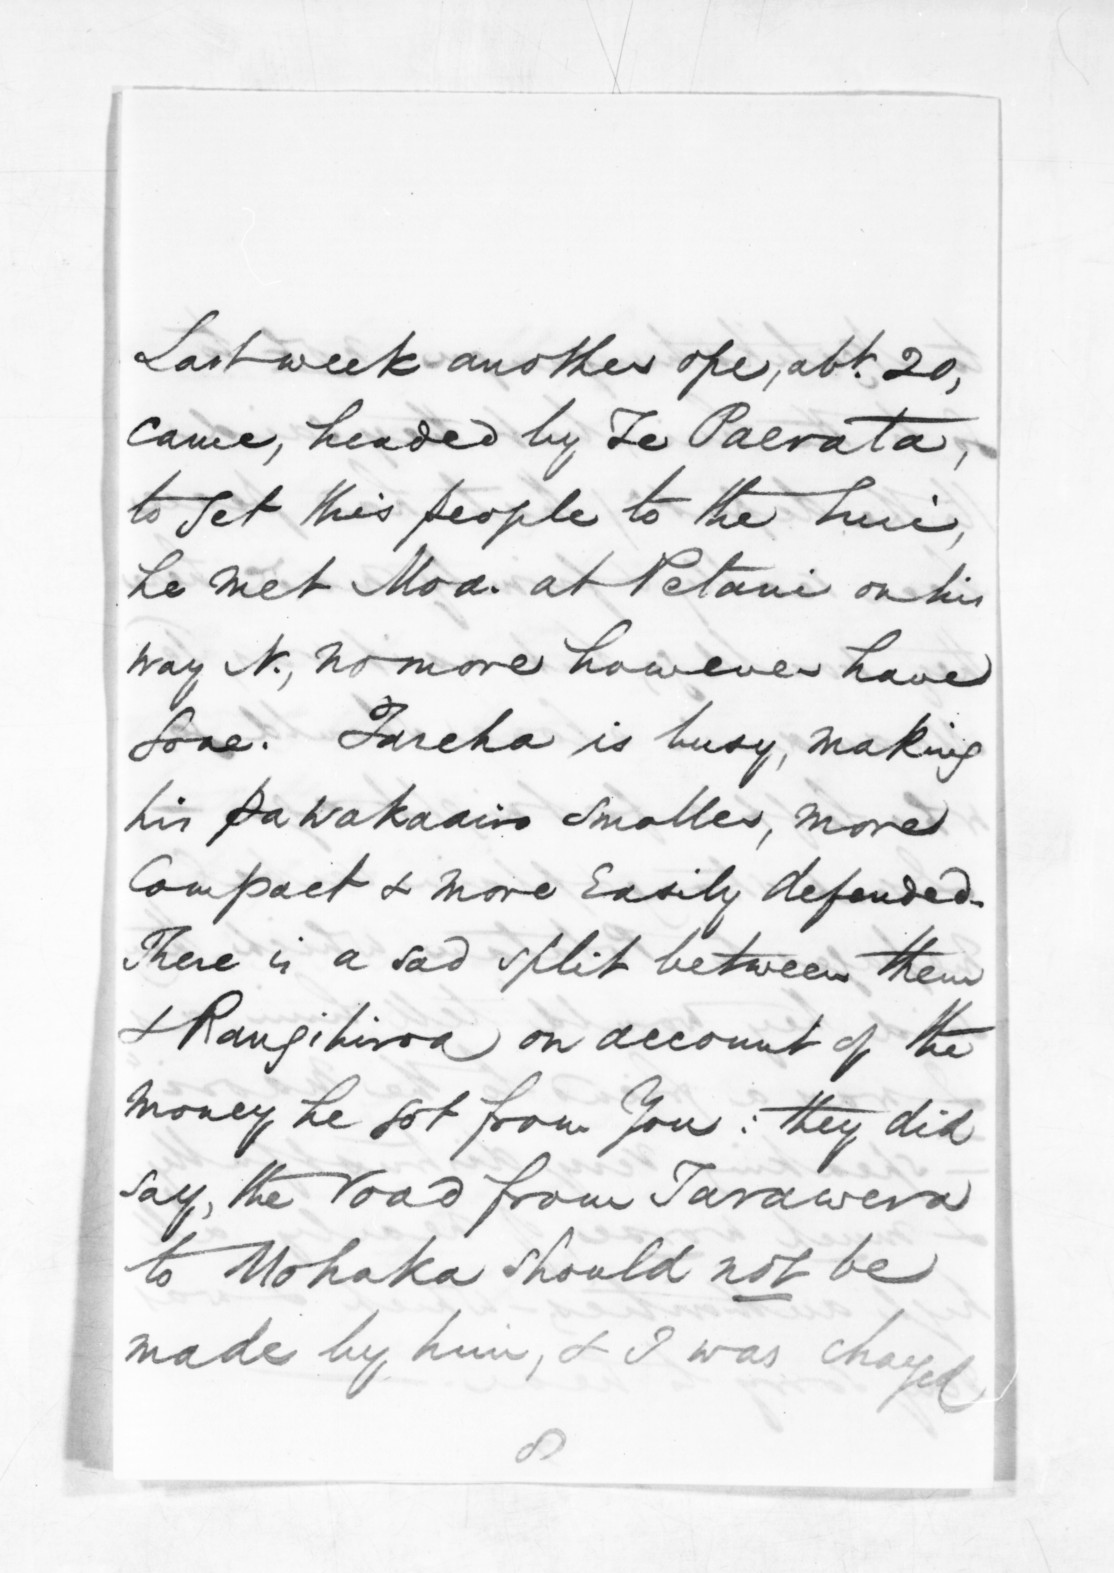 Last week another ope, abt. 20,
came, headed by Te Paerata,
to get this people to the hui,
he met Moa. at Petani on his
way N., no more however have
gone. Tareha is busy, making
his pa Wakaairo smaller, more
Compact & more Easily defended.
There is a sad split between them
& Rangihiroa on account of the
money he got from You: they did
say, the road from Tarawera
to Mohaka should not be
made by him, & I was charged
8